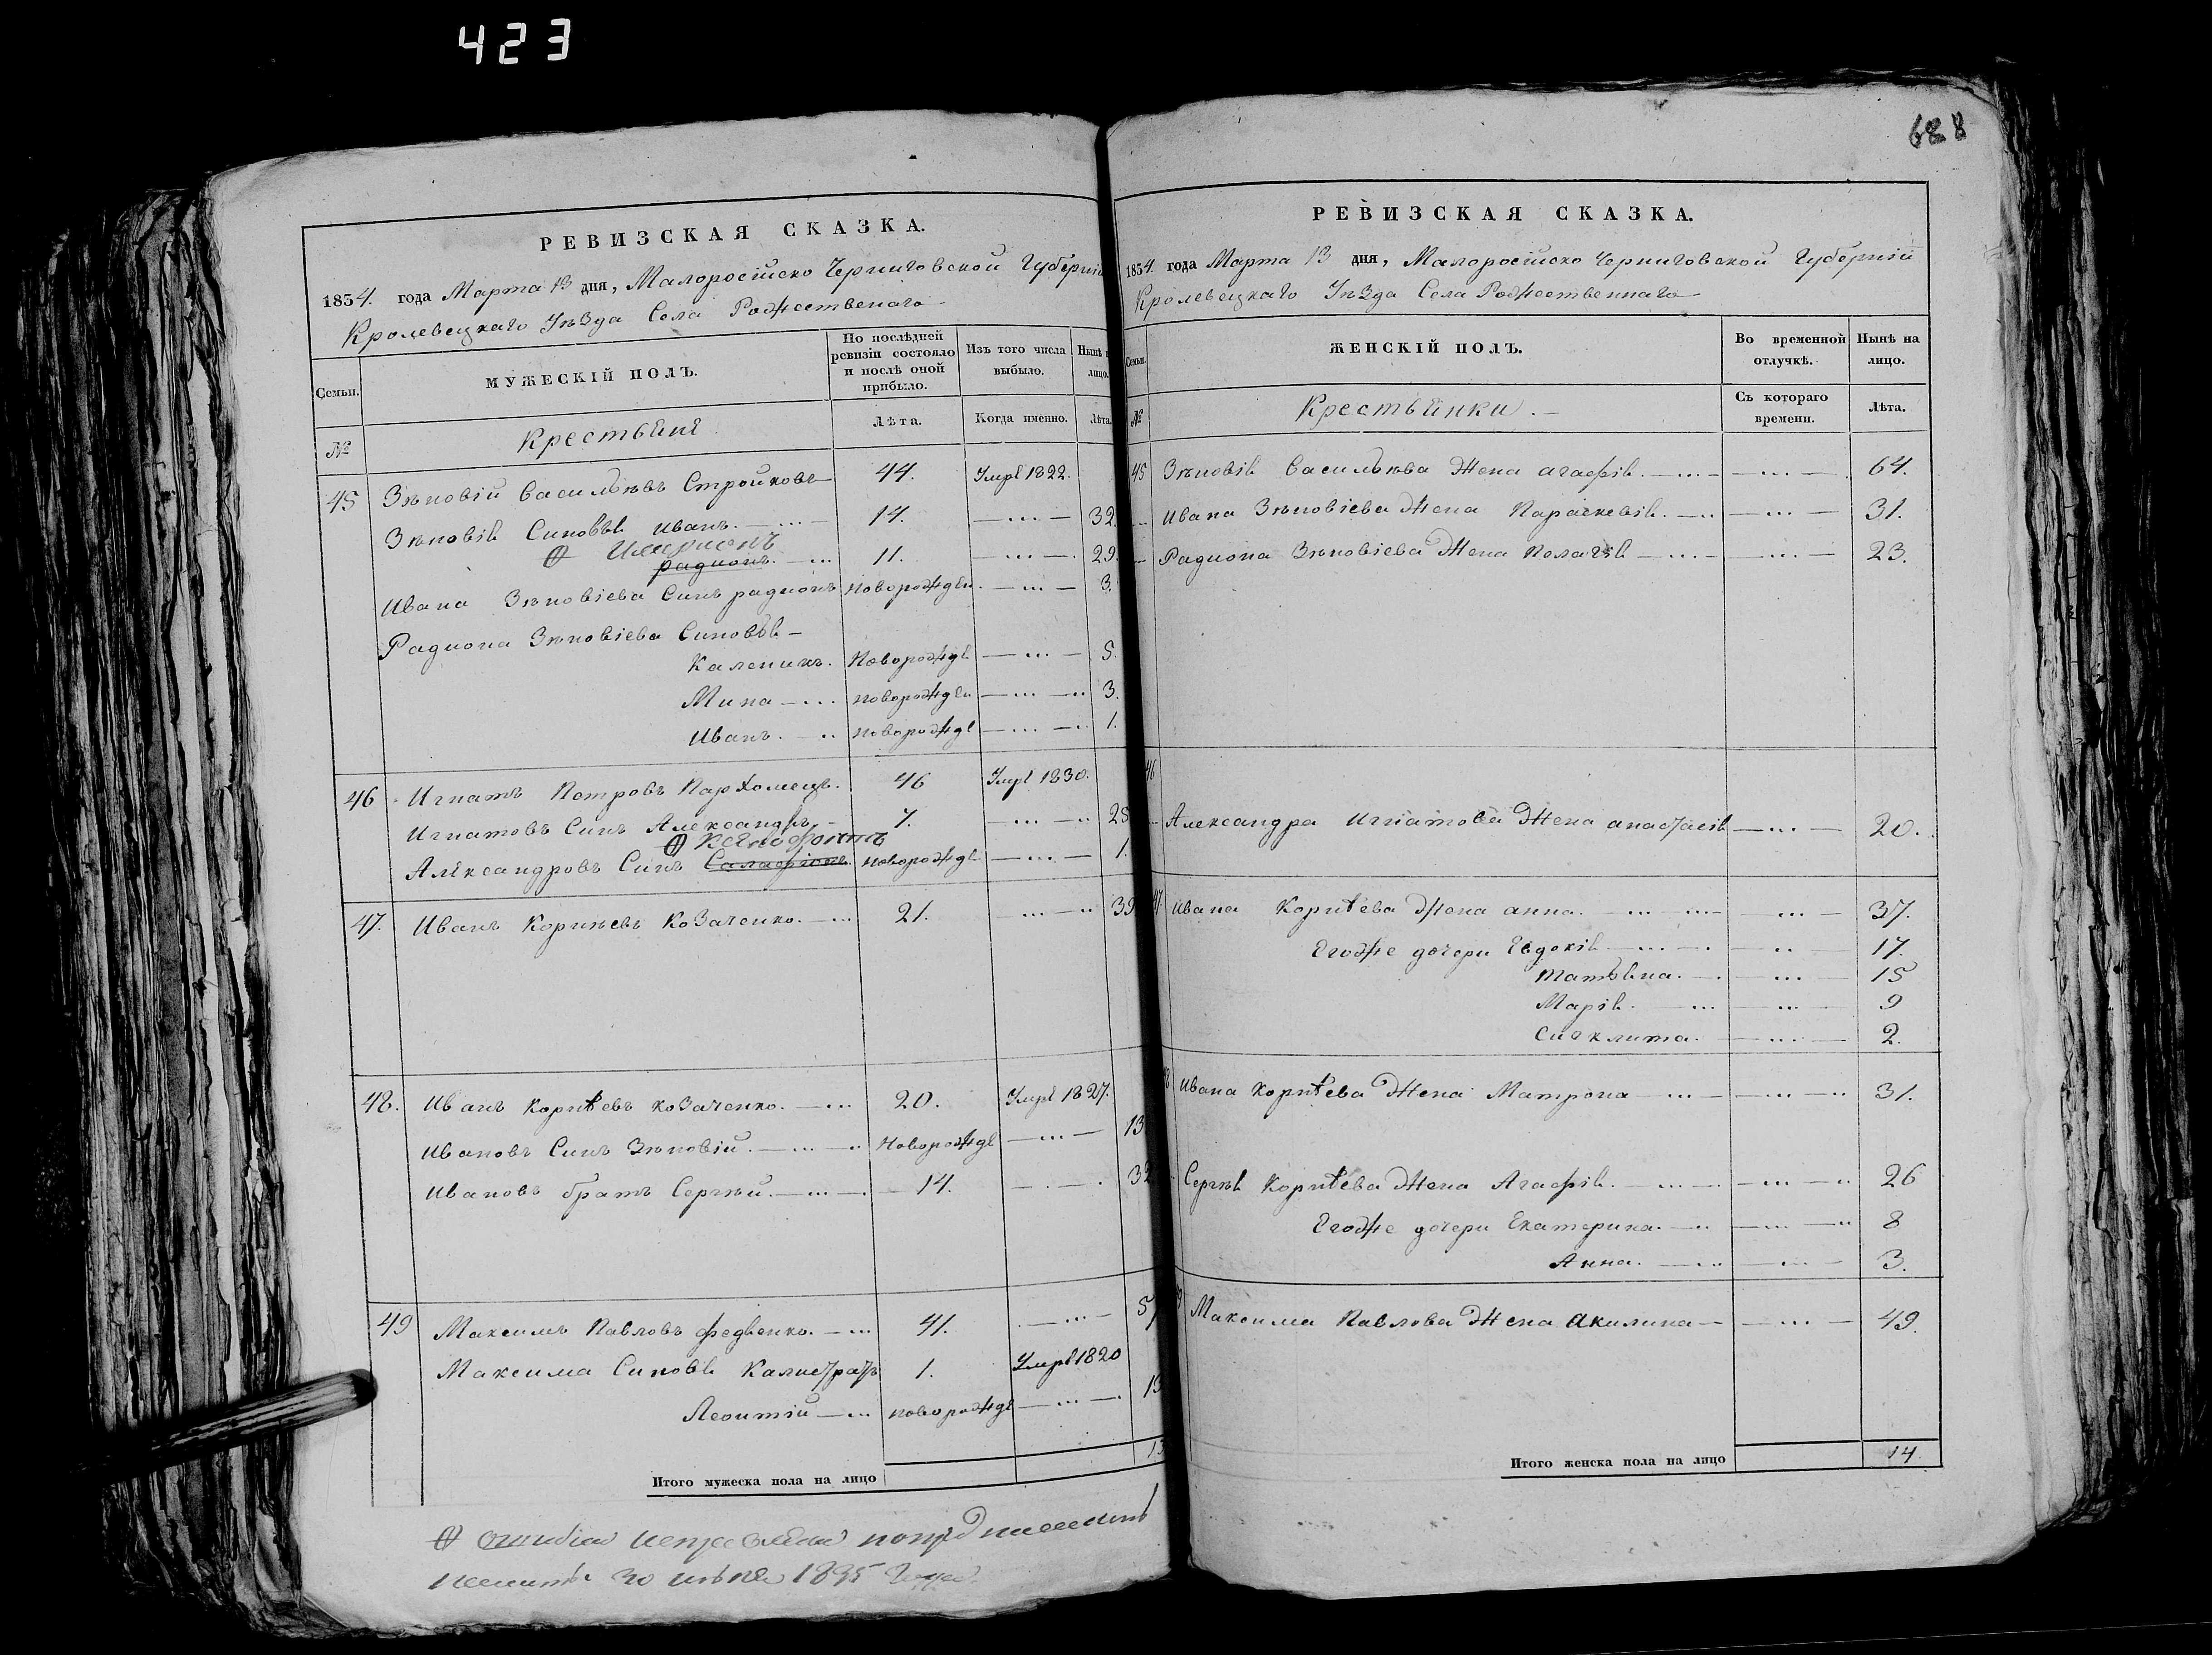 423
688
РЕВИЗСКАЯ СКАЗКА.
1834. года Марта 13 дня, Малоросійско Черниговской Губерніи
Кролевецкаго Уѣзда Села Рождественаго
Семьи. МУЖЕСКІЙ ПОЛЪ. По послѣдней ревизіи состояло и послѣ оной прибыло. Изъ того числа выбыло. Нынѣ лицо.
№ Крестьяне Лѣта. Когда именно. Лѣта.
45 Зѣновій Васильѣвъ Стройковъ 44. Умре 1822.
Зѣновія Синовья Иванъ. 14. 32.
радионъ. 11. 29.
Ивана Зѣновіева Синъ радионъ новорожден. 3.
Радиона Зѣновіева Синовья
Каленикъ. Новорожде 5.
Мина новорожден 3.
Иванъ. новорожде 1.
46 Игнатъ Петровъ Пархомецъ. 46 Умре 1830.
Игнатовъ Синъ Александръ 7. 25
Ксенофонтъ
Александровъ Синъ новорожде 1.
47. Иванъ Корнѣевъ Козаченко. 21. 39
48. Иванъ Корнѣевъ Козаченко. 20. Умре 1827.
Ивановъ Синъ Зѣновій. Новорожде 13
Ивановъ братъ Сергѣй. 14. 32
49 Максимъ Павловъ Федченко. 41. 57
Максима Синовья Калистратъ 1. Умре 1820
Леонтій новорожде 13
Итого мужеска пола на лицо 13
1835 года
РЕВИЗСКАЯ СКАЗКА.
1834. года Марта 13 дня, Малоросійско Черниговской Губерніи
Кролевецкаго Уѣзда Села Рождественнаго
Семьи. ЖЕНСКІЙ ПОЛЪ. Во временной отлучкѣ. Нынѣ на лицо.
№ Крестьянки. Съ котораго времени. Лѣта.
45 Зѣновія Васильѣва Жена агафія. 64.
Ивана Зѣновіева Жена Параскевія. 31.
Радиона Зѣновіева Жена Пелагія 23.
46
Александра Игнатова Жена анастасія 20.
47 Ивана Корнѣева Жена анна. 37.
Егоже дочери Евдокія 17.
татьяна. 15
Марія. 9
Сигклита. 2.
Ивана Корнѣева Жена Матрона 31.
Сергѣя Корнѣева Жена Агафія. 26
Егоже дочери Екатерина. 8
Анна. 3.
Максима Павлова Жена Акилина 49.
Итого женска пола на лицо 14.